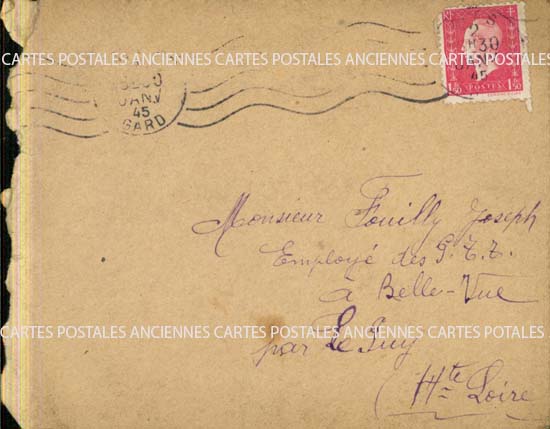 CARTES POSTALES ANCIENNES CARTES POSTALES ANCIENNES CARTES POSTALES
JANV
45
GARD
2
30
45
1F50 POSTES 1F50
Monsieur Fouilly Joseph
Employé des P.T.T.
à Belle-Vue
CARTES POSTALES ANCIENNES CARTES POSTALES ANCIENNES CARTES POTALES
par Le Puy
(Hte Loire